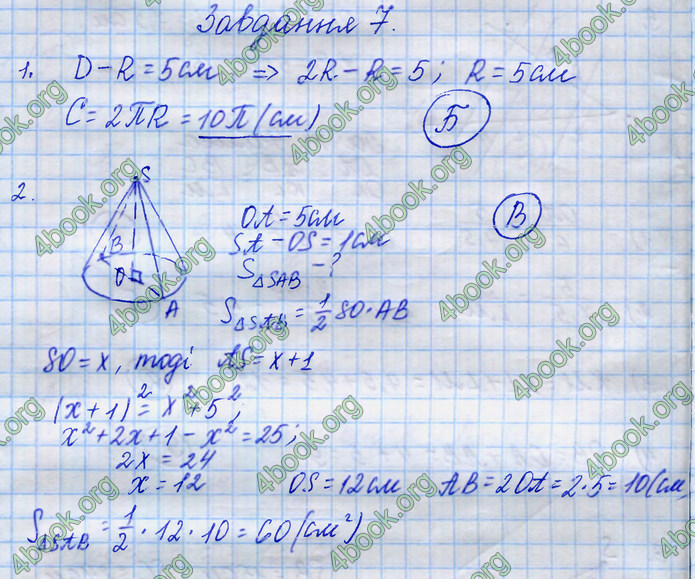 Завдання 7.
1. D - R = 5см => 2R - R = 5; R = 5см
C = 2ПR = 10П (см) Б
2.
S
B
O
A
OA = 5см В
SA - OS = 1см
S△SAB - ?
S△SAB = 1/2 SO · AB
SO = x, тоді AS = x + 1
(x + 1)² = x² + 5²;
x² + 2x + 1 - x² = 25;
2x = 24
x = 12 OS = 12см AB = 2OA = 2 · 5 = 10 (см
S△SAB = 1/2 · 12 · 10 = 60 (см²)
4book.org